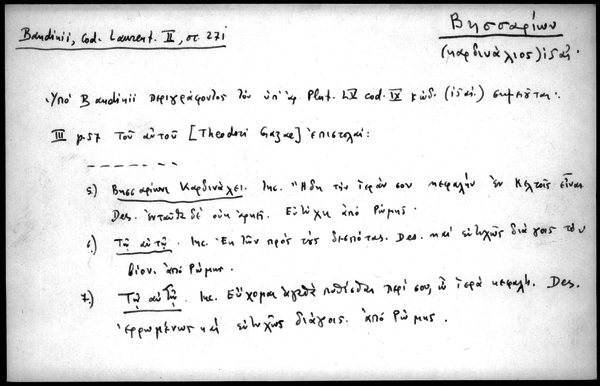 Βησσαρίων
Bandinii, Cod. Laurent. II, στ. 271
(καρδινάλιος) ἰδαί.
Ὑπὸ Bandinii περιγράφοντος τὸν ὑπ' ἀρ. Plut. LV cod. IX κώδ. (ἰδαί.) σημειοῦται:
III p. 57 Τοῦ αὐτοῦ [Theodori Gazae] ἐπιστολαί:
5) Βησσαρίωνι Καρδινάλει. Inc. "Ηδη τὴν ἱεράν σου κεφαλὴν ἐν Κελτοῖς εἶναι
Des. ἐνταῦθα δὲ οὐκ Εὐτύχει ἀπὸ Ῥώμης.
6) Τῷ αὐτῷ. Inc. Ἐκ τῶν πρὸς τοὺς δεσπότας. Des. καὶ εὐτυχῶς διάγοις τὸν
βίον. ἀπὸ Ῥώμης.
7) Τῷ αὐτῷ. Inc. Εὔχομαι ἀγαθὰ περί σου, ὦ ἱερὰ κεφαλή. Des.
ἐρρωμένως καὶ εὐτυχῶς διάγοις. ἀπὸ Ῥώμης.